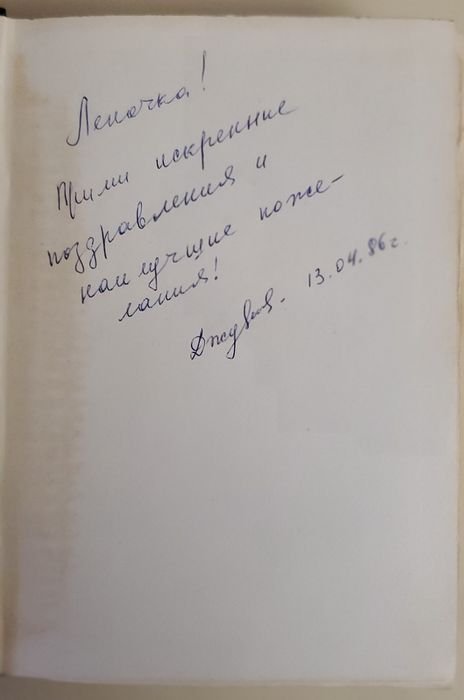 Леночка!
Прими искренние
поздравления и
наилучшие поже-
лания!
13.04.86г.